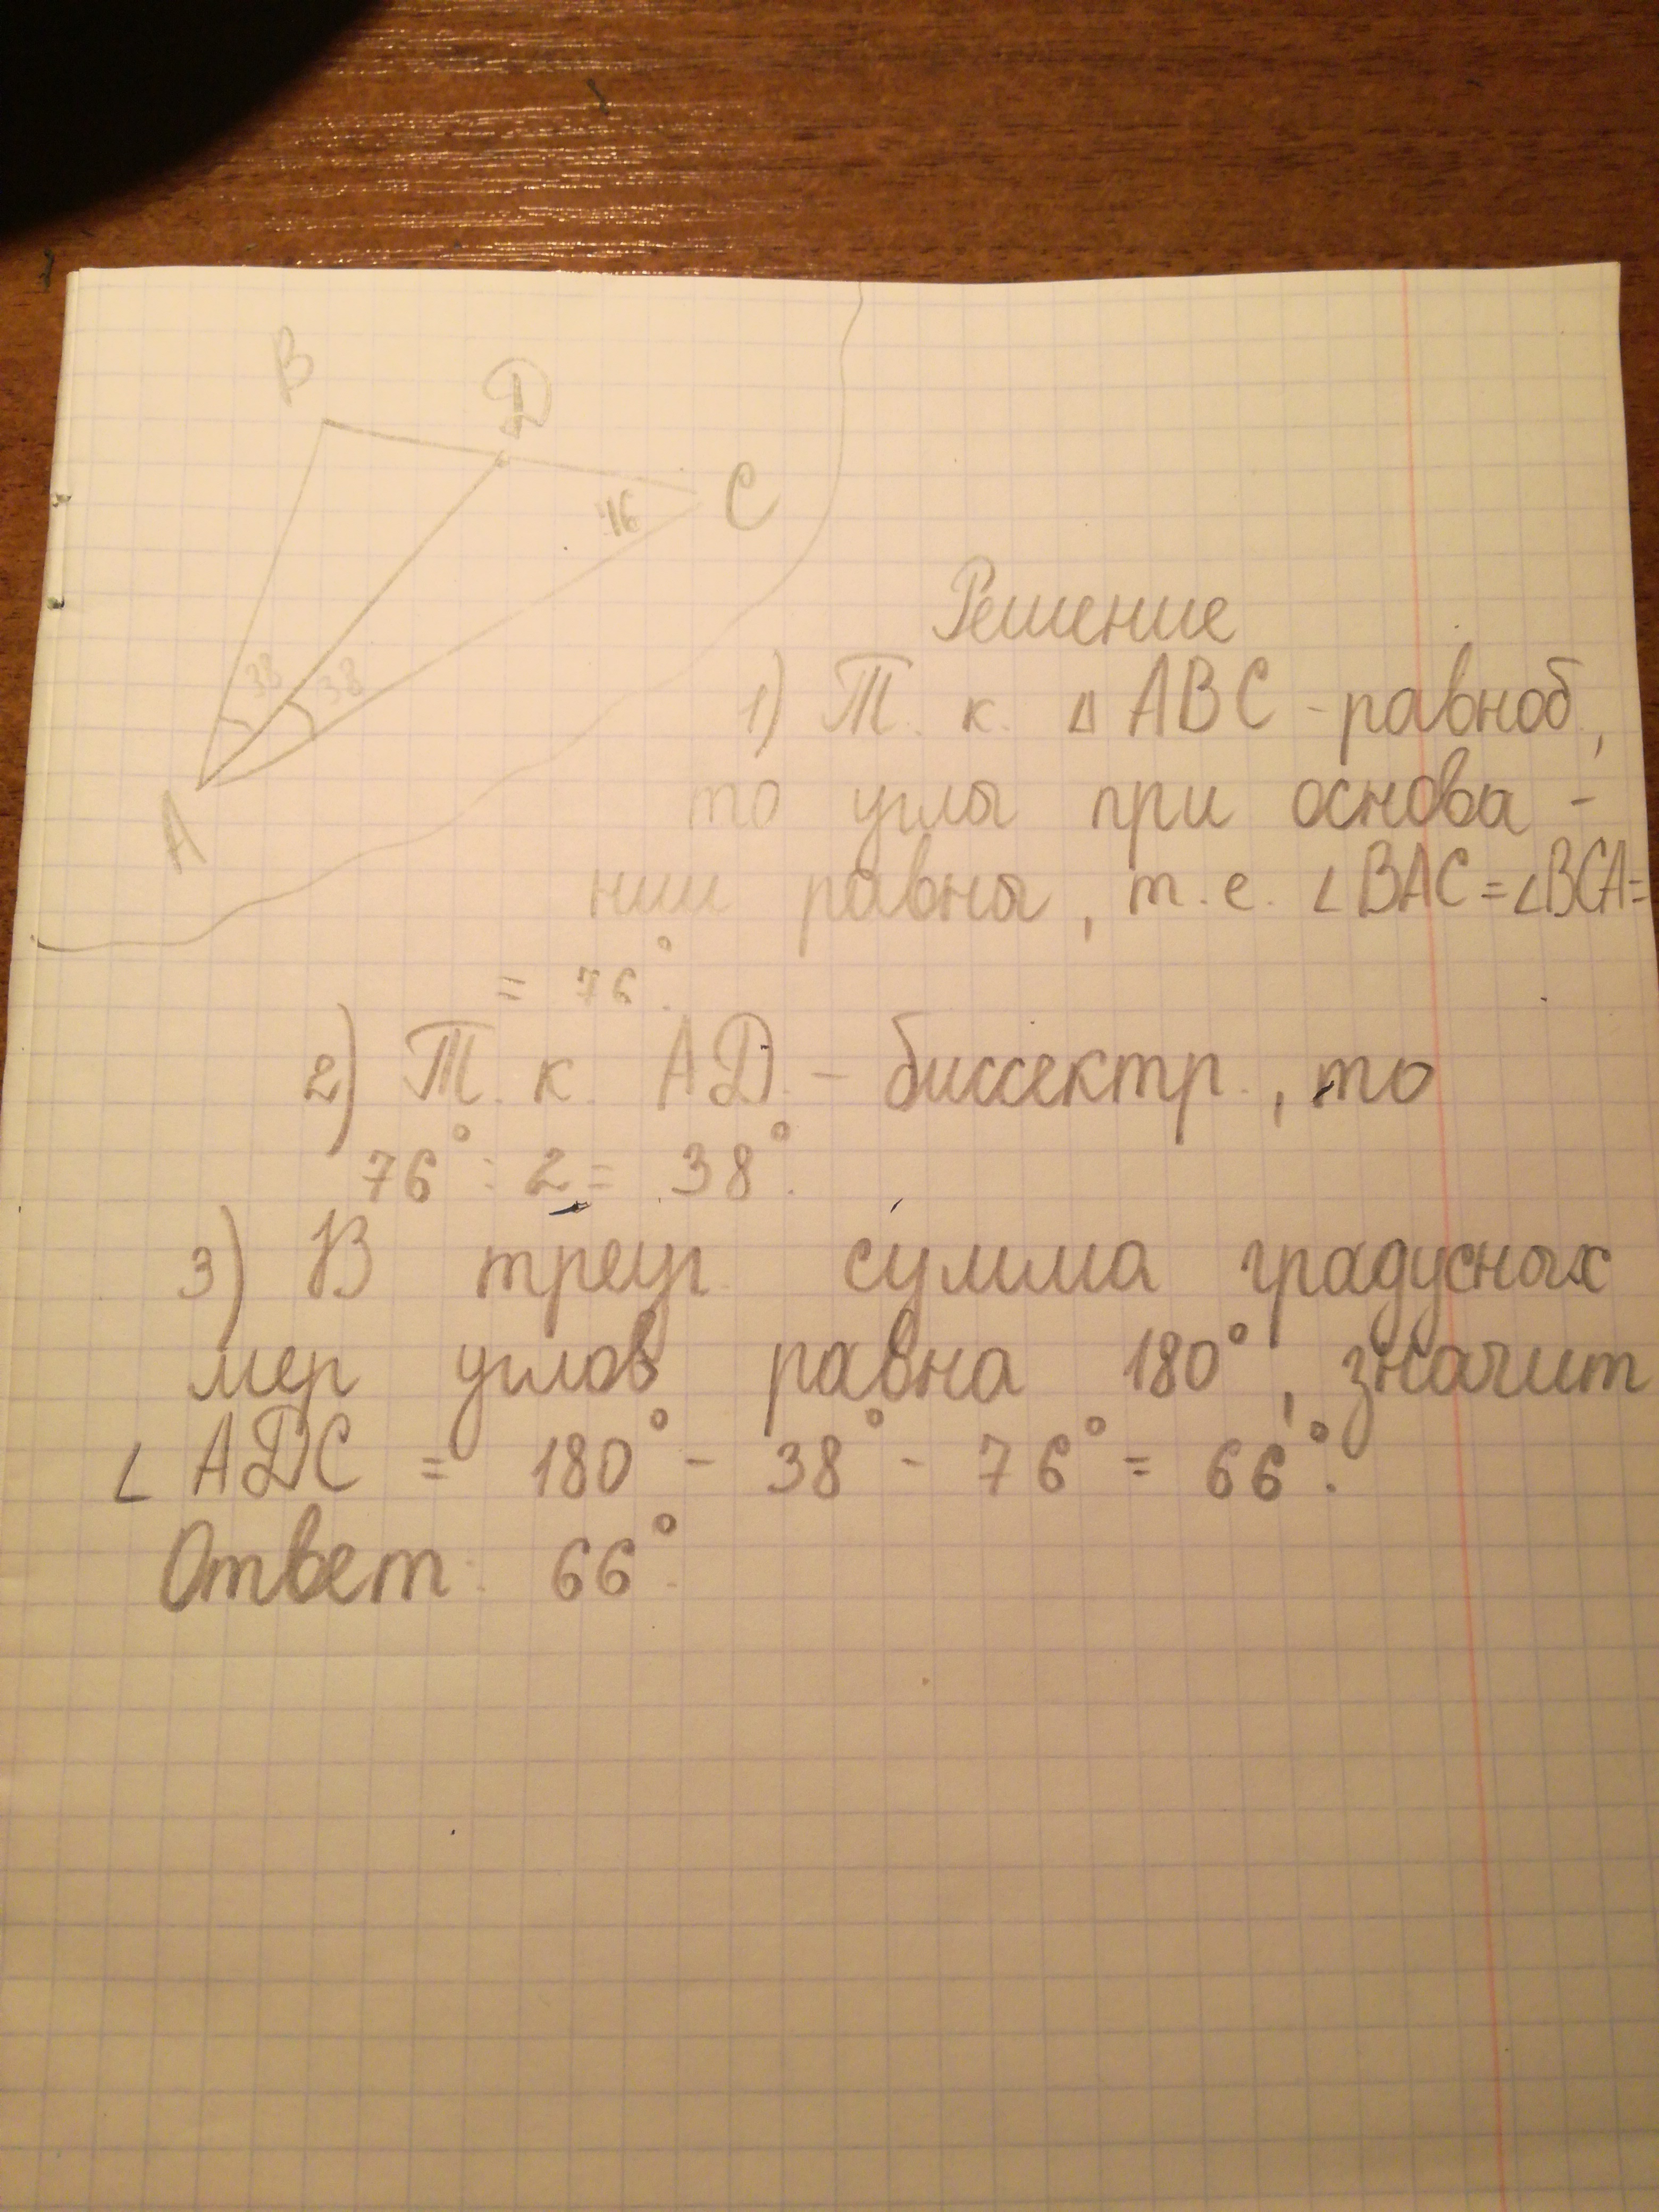 B
D
C
76
38 38
A
Решение
1) Т. к. Δ ABC - равноб.,
то углы при основа -
нии равны, т. е. ∠BAC = ∠BCA =
= 76°.
2) Т. к. AD - биссектр., то
76° : 2 = 38°.
3) В треуг. сумма градусных
мер углов равна 180°, значит
∠ ADC = 180° - 38° - 76° = 66°.
Ответ: 66°.